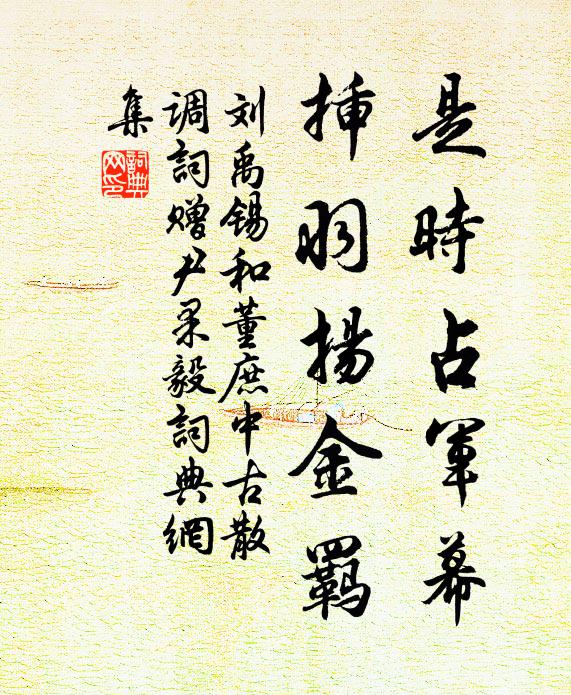 是時占軍幕
挿羽揚金羈
刘禹锡和董庶中古散
调詞赠尹果毅詞典網
集
詞典网印